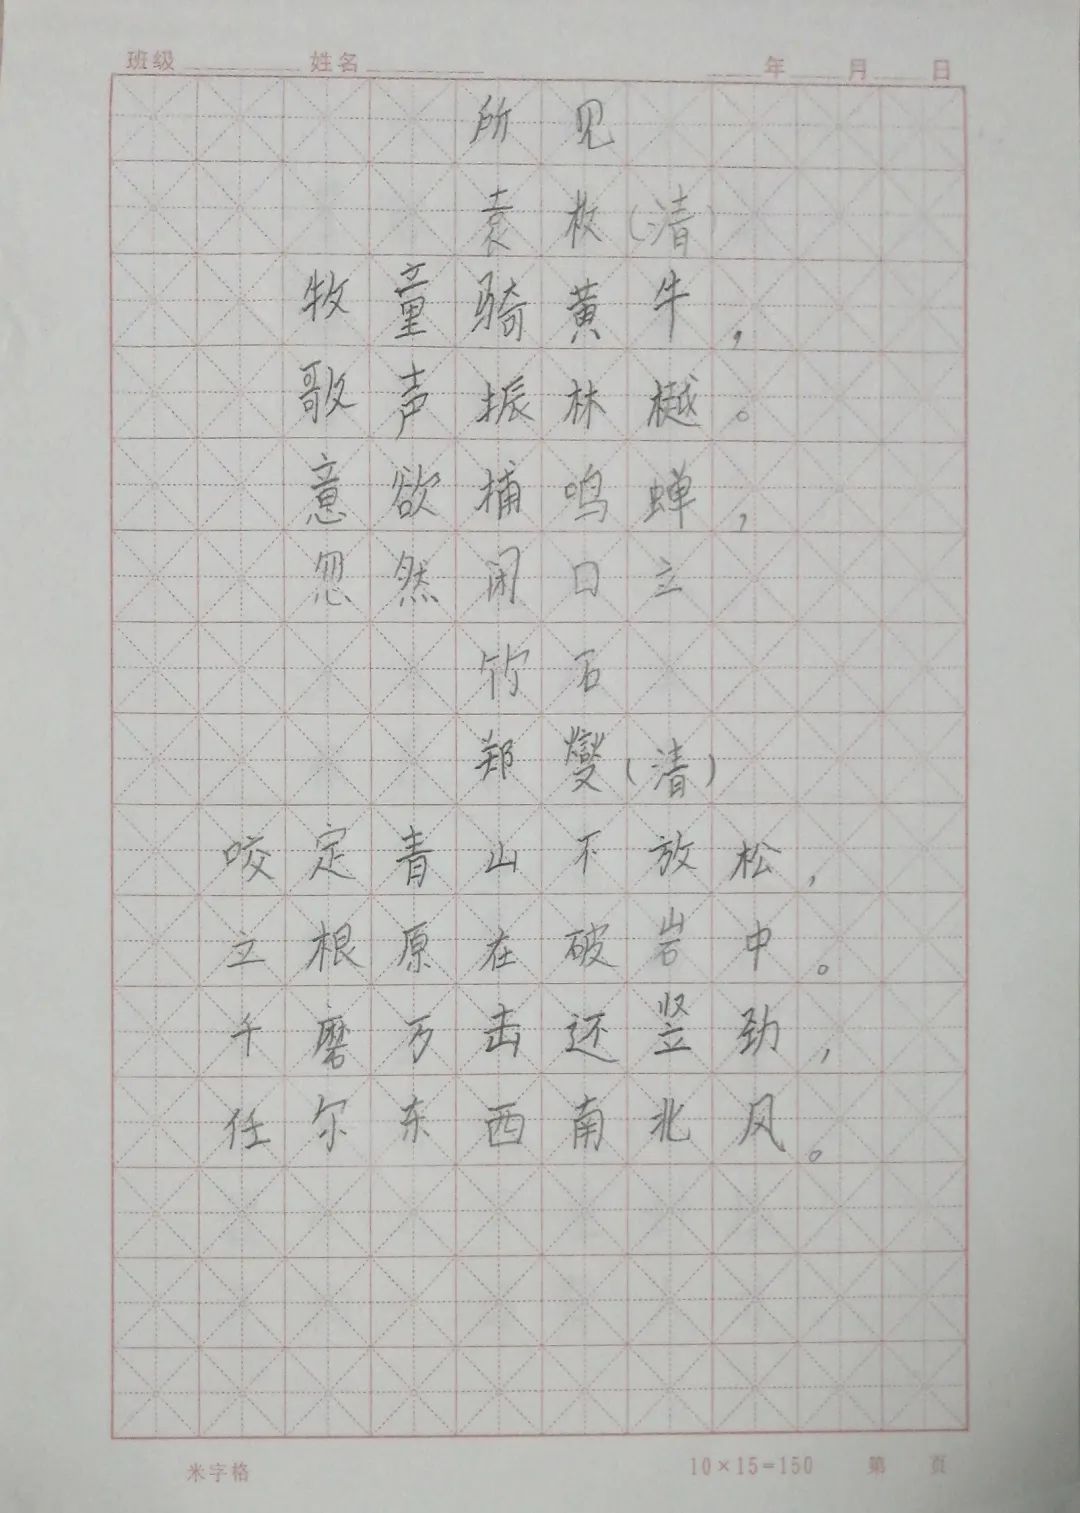 班级 姓名 年 月 日
所见
袁枚(清)
牧童骑黄牛,
歌声振林樾。
意欲捕鸣蝉,
忽然闭口立
竹石
郑燮(清)
咬定青山不放松,
立根原在破岩中。
千磨万击还竖劲,
任尔东西南北风。
米字格 10×15=150 第 页